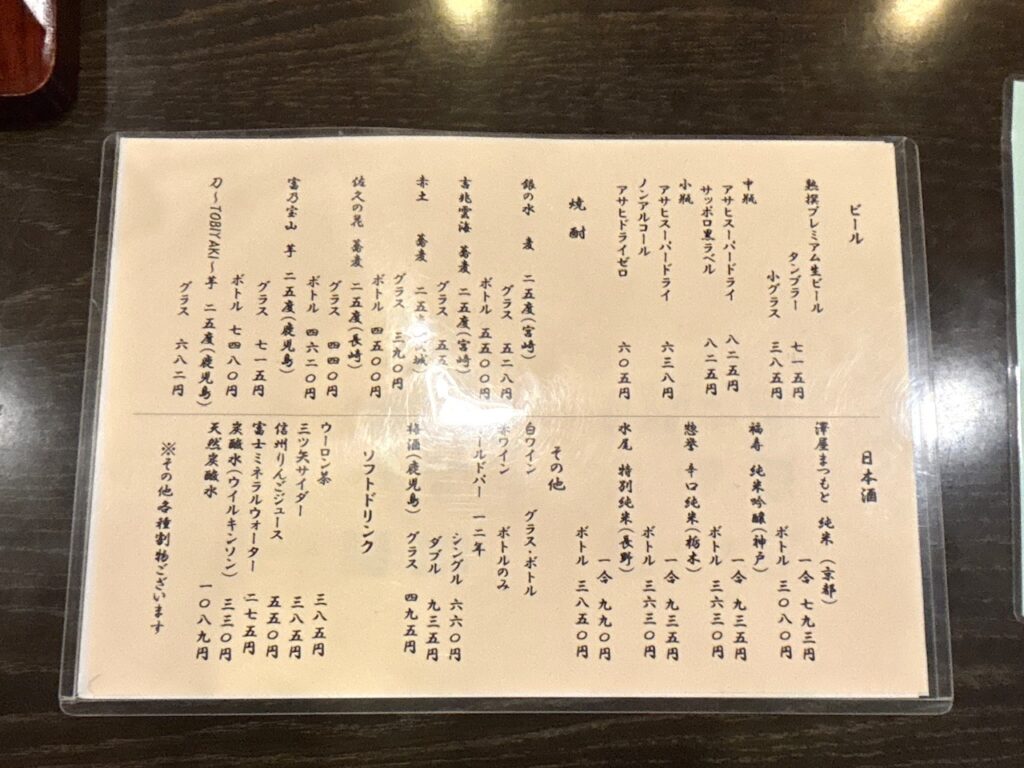 ビール
熟撰プレミアム生ビール
タンブラー 七一五円
小グラス 三八五円
中瓶
アサヒスーパードライ 八二五円
サッポロ黒ラベル 八二五円
小瓶
アサヒスーパードライ 六三八円
ノンアルコール
アサヒドライゼロ 六〇五円
焼酎
銀の水 麦 二五度(宮崎)
グラス 五二八円
ボトル 五五〇〇円
吉兆雲海 蕎麦 二五度(宮崎)
グラス 五五
赤土 蕎麦 二五度 城)
グラス 三九〇円
ボトル 四五〇〇円
佐久の花 蕎麦 二五度(長崎)
グラス 四四〇円
ボトル 四六二〇円
富乃宝山 芋 二五度(鹿児島)
グラス 七一五円
ボトル 七四八〇円
刀〜TOBIYAKI〜芋 二五度(鹿児島)
グラス 六八二円
日本酒
澤屋まつもと 純米 (京都)
一合 七九三円
ボトル 三〇八〇円
福寿 純米吟醸(神戸)
一合 九三五円
ボトル 三六三〇円
惣誉 辛口純米(栃木)
一合 九三五円
ボトル 三六三〇円
水尾 特別純米(長野)
一合 九九〇円
ボトル 三八五〇円
その他
白ワイン グラス・ボトル
赤ワイン ボトルのみ
ールドパー 一二年
シングル 六六〇円
ダブル 九三五円
梅酒(鹿児島) グラス 四九五円
ソフトドリンク
ウーロン茶 三八五円
三ツ矢サイダー 三八五円
信州りんごジュース 五五〇円
富士ミネラルウォーター 二七五円
炭酸水(ウイルキンソン) 三三〇円
天然炭酸水 一〇八九円
※その他各種割物ございます